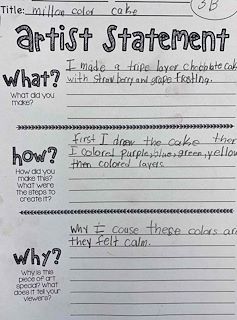 Title: millon color cake
3B
Artist Statement
What?
What did you make?
I made a tripe layer chocolate cak
with strawberry and grape frosting.
how?
How did you make this? What were the steps to create it?
first I drew the cake then
I colored purple, blue, green, yellow
then colored layers.
Why?
Why is this piece of art special? What does it tell your viewers?
Why I couse these colors are
they felt calm.